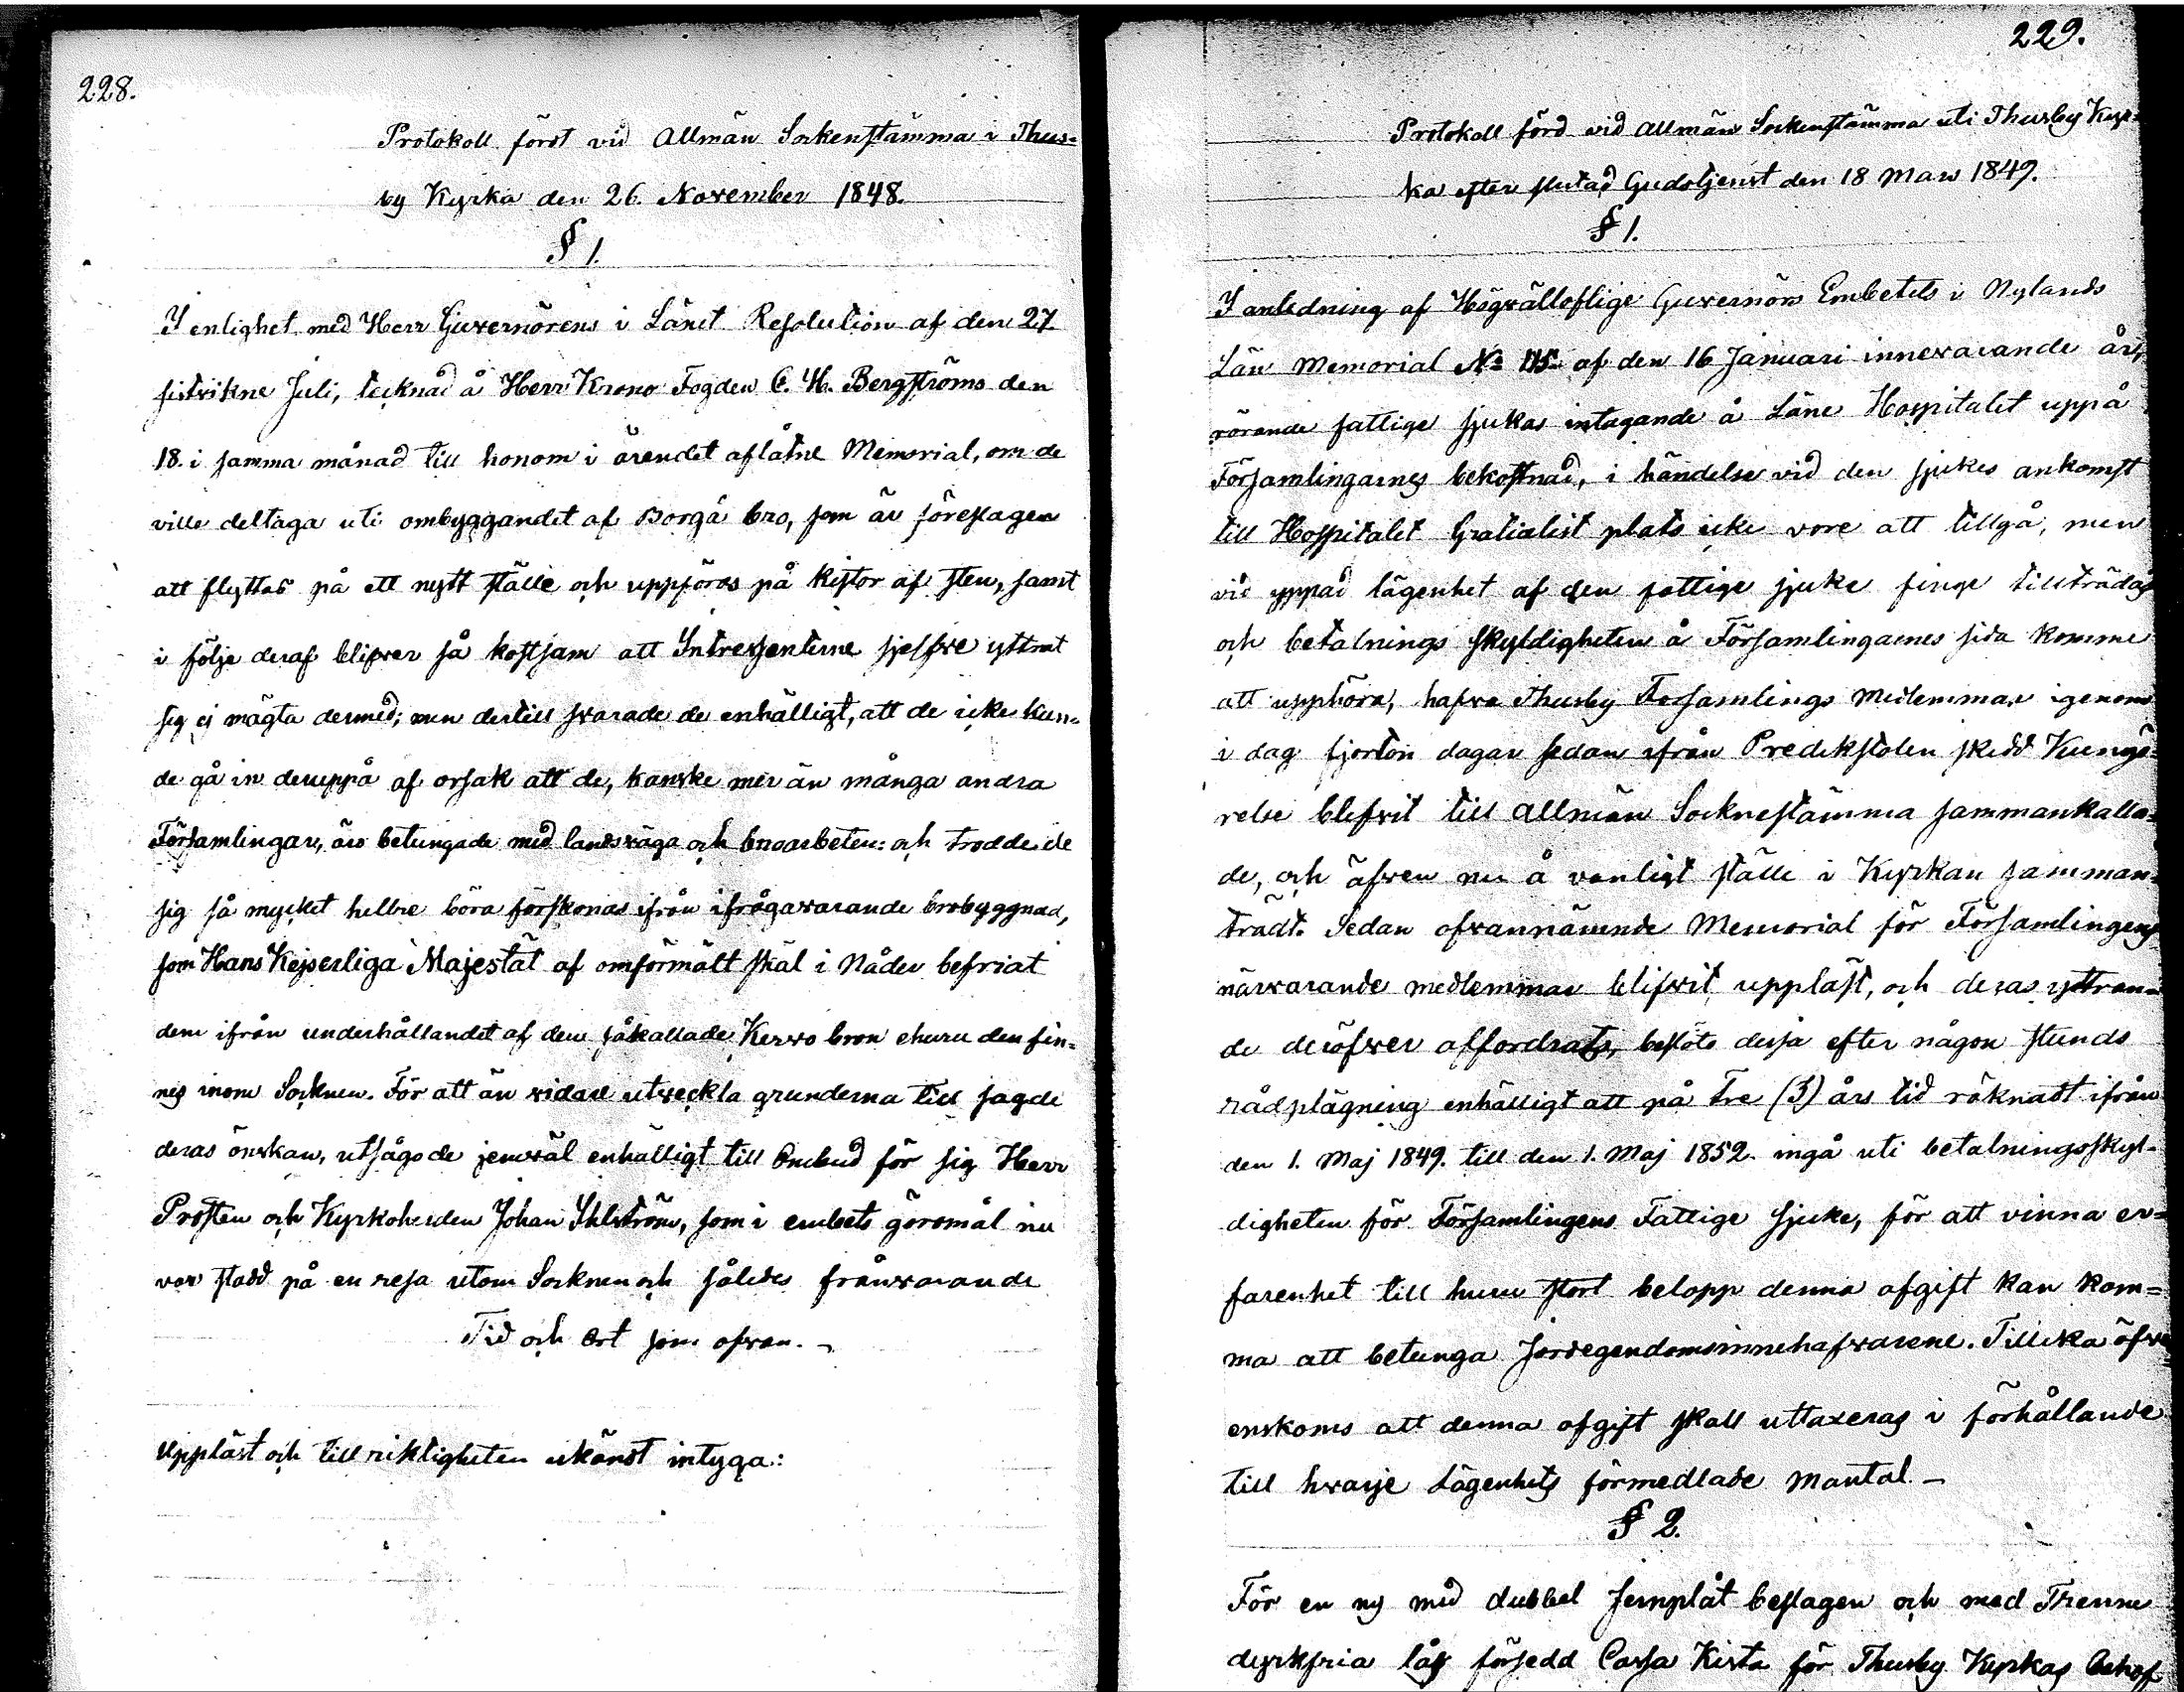 228.
Protokoll fördt vid Allmän Sockenstämma i Thus=
by Kyrka den 26. November 1848.
§ 1.
I enlighet med Herr Guvernörens i Länet Resolution af den 27.
sistvikne Juli, tecknad å Herr Krono Fogden C. H. Bergströms den
18. i samma månad till honom i ärendet aflåtne Memorial, om de
ville deltaga uti ombyggandet af Borgå bro, som är föreslagen
att flyttas på ett nytt ställe och uppföras på kistor af sten, samt
i följe deraf blifver så kostsam att Intressenterne sjelfve yttrat
sig ej mägta dermed; men dertill svarade de enhälligt, att de icke kun=
de gå in deruppå af orsak att de, kanske mer än många andra
Församlingar, äro betungade med landsväga och broarbeten: och trodde de
sig så mycket hellre böra förskonas ifrån ifrågavarande brobyggnad,
som Hans Kejserliga Majestät af omförmält skäl i Nåder befriat
dem ifrån underhållandet af den såkallade Kervo bron ehuru den fin=
nes inom Socknen. För att än vidare utveckla grunderna till sagde
deras önskan, utsågo de jemväl enhälligt till Ombud för sig Herr
Prosten och Kyrkoherden Johan Ihlström, som i embets göromål nu
var stadd på en resa utom Socknen och således frånvarande
Tid och Ort som ofvan.
Uppläst och till riktigheten erkändt intyga:
229.
Protokoll förd vid allmän Sockenstämma uti Thusby Kyr=
ka efter slutad Gudstjenst den 18 Mars 1849.
§ 1.
I anledning af Högvälloflige Guvernörs Embetets i Nylands
Län Memorial № af den 16 Januari innevarande år,
rörande fattige sjukas intagande å Läns Hospitalet uppå
Församlingarnes bekostnad, i händelse vid den sjukes ankomst
till Hospitalet Gratialist plats icke vore att tillgå, men
vid yppad lägenhet af den fattige sjuke finge tillträdas
och betalnings skyldigheten å Församlingarnes sida komme
att upphöra, hafva Thusby Församlings Medlemmar igenom
i dag fjorton dagar sedan ifrån Predikstolen skedd Kungö=
relse blifvit till allmän Socknestämma sammankalla=
de, och äfven nu å vanligt ställe i Kyrkan samman=
trädt. Sedan ofvannämnde Memorial för Församlingens
närvarande medlemmar blifvit uppläst, och deras yttran=
de deröfver affordrats, beslöto dessa efter någon stunds
rådplägning enhälligt att på Tre (3) års tid räknadt ifrån
den 1. Maj 1849. till den 1. Maj 1852. ingå uti betalningsskyl=
digheten för Församlingens Fattige sjuke, för att vinna er=
farenhet till huru stort belopp denna afgift kan kom=
ma att betunga Jordegendomsinnehafvarene. Tillika öfve
enskoms att denna afgift skall uttaxeras i förhållande
till hvarje Lägenhets förmedlade Mantal.
§ 2.
För en ny med dubbel Jernplåt beslagen och med Trenne
dyrkfria lås försedd Cassa Kista för Thusby Kyrkas behof